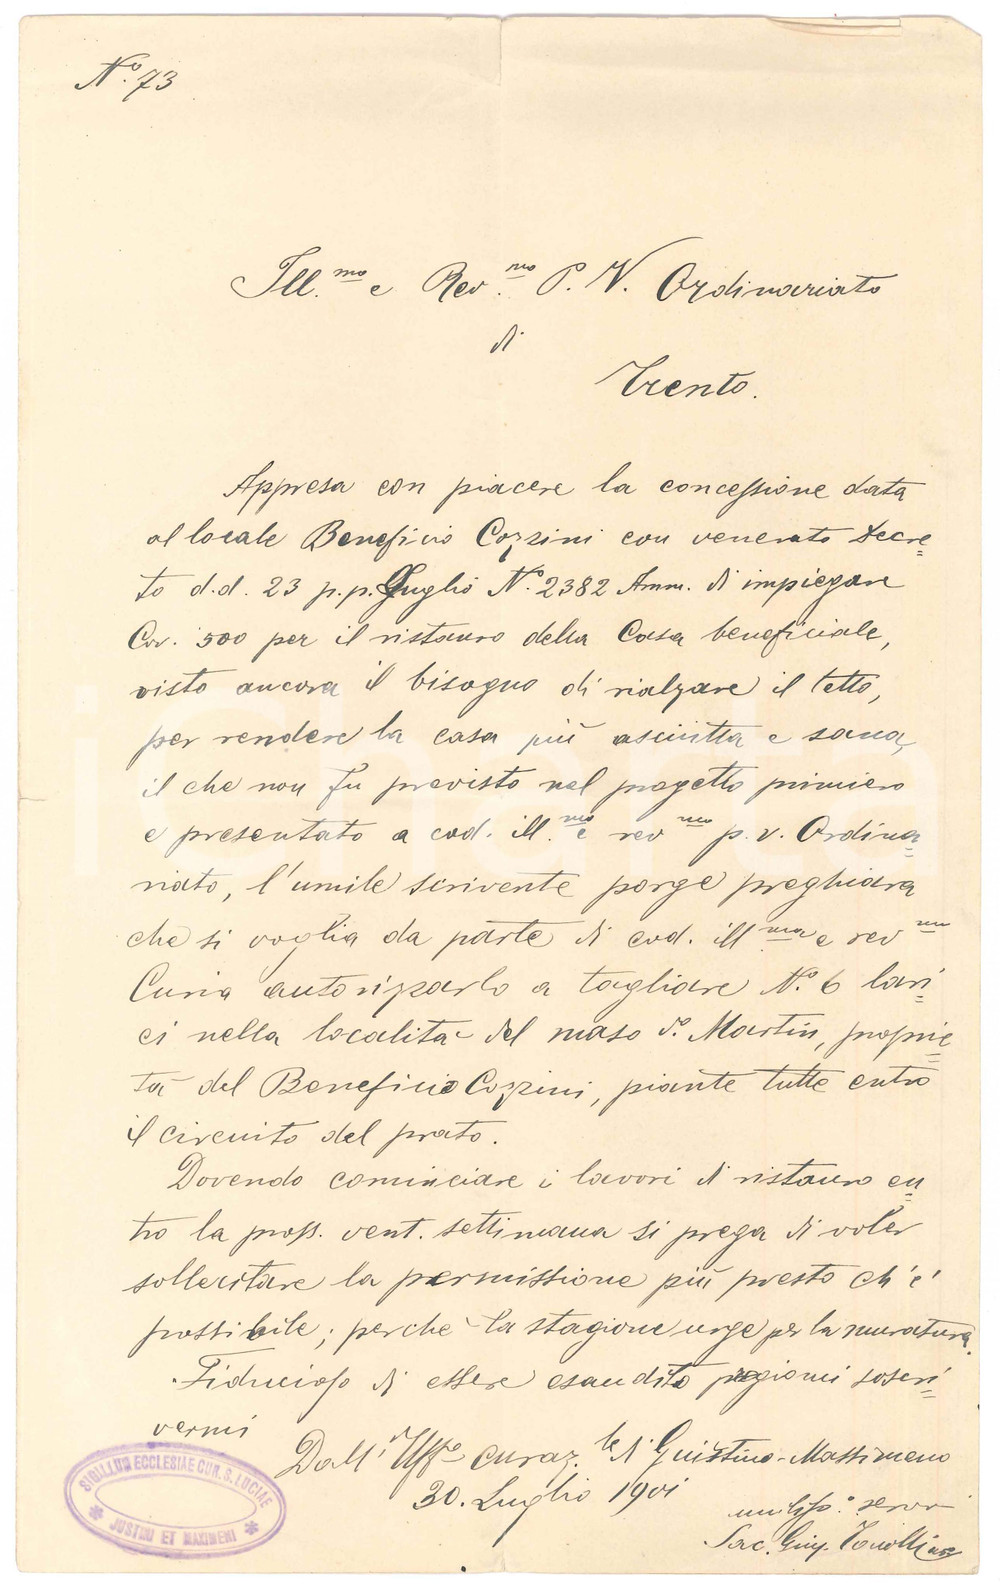 N.o 73
Ill.mo e Rev.mo P. V. Ordinariato
di
Trento.
Appresa con piacere la concessione data
al locale Beneficio Cozzini con venerato Decre=
to d.d. 23 p.p. Luglio N.o 2382 Amm. di impiegare
Cor. 500 per il ristauro della Casa beneficiale,
visto ancora il bisogno di rialzare il tetto,
per rendere la casa più asciutta e sana,
il che non fu previsto nel progetto primiero
e presentato a cod. ill.mo e rev mo p. v. Ordina=
riato, l'umile scrivente porge preghiera
che si voglia da parte di cod. ill ma e rev ma
Curia autorizzarlo a tagliare N.o 6 lari=
ci nella località del maso di Martin, proprie=
tà del Beneficio Cozzini, piante tutte entro
il circuito del prato.
Dovendo cominciare i lavori di ristauro en=
tro la pross. vent. settimana si prega di voler
sollecitare la permissione più presto ch'è
possibile; perchè la stagione urge per la muratura.
Fiducioso di essere esaudito pregiomi soscri=
vermi
Dall' Uff.o curaz.le di Giustino-Massimeno
30. Luglio 1901
umiliss.o servo
Sac. Gius.
SIGILLUM ECCLESIAE CUR. S. LUCIAE
JUSTINI ET MAXIMENI